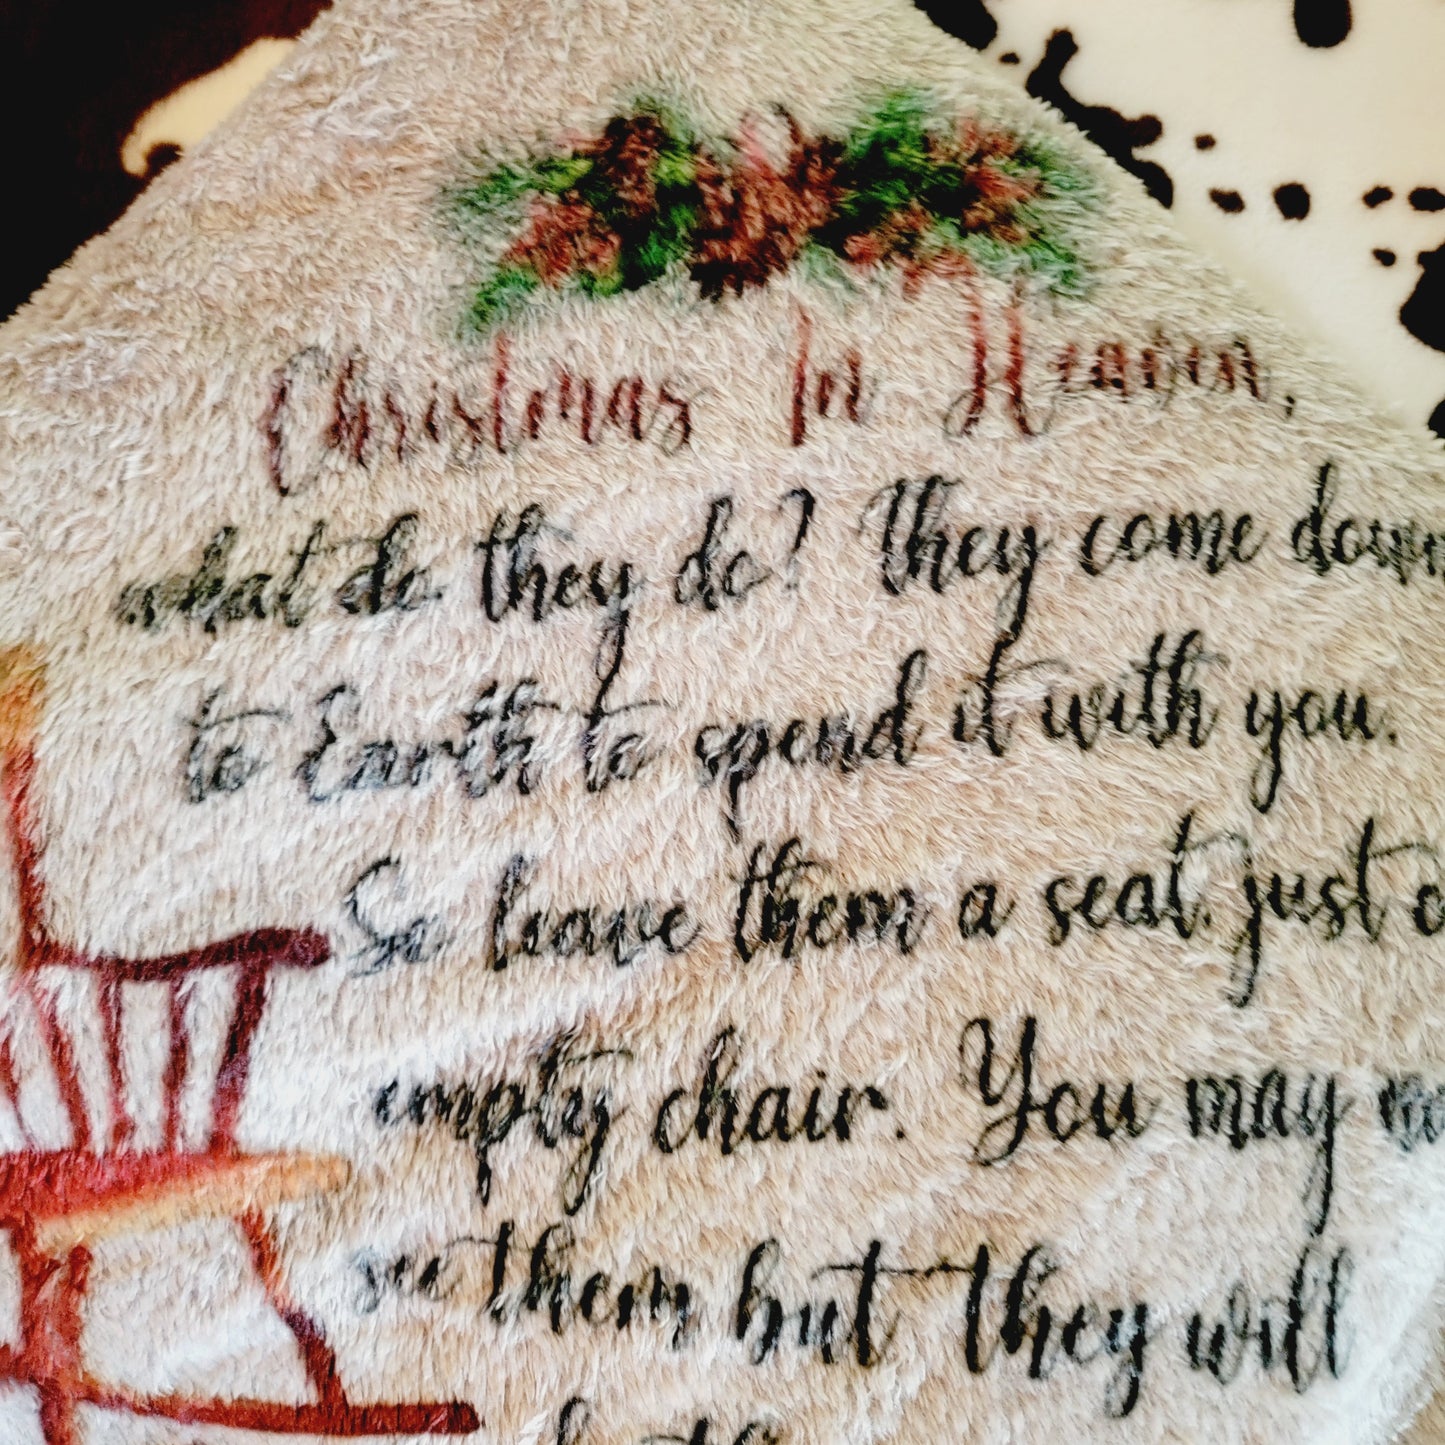 Christmas In Heaven,
what do they do? They come down
to Earth to spend it with you.
So leave them a seat. just
empty chair. You may
see them but they will